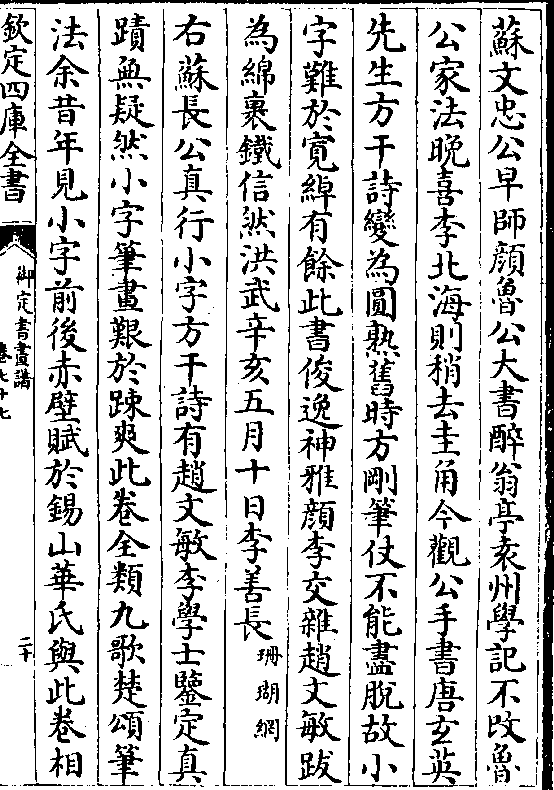 蘇文忠公早師顔魯公大書醉翁亭袁州學記不改魯
公家法晚喜李北海則稍去圭角今觀公手書唐玄英
先生方干詩變為圓熟舊時方剛筆仗不能盡脫故小
字難於寛綽有餘此書俊逸神雅顔李交雜趙文敏跋
為綿裹鐵信然洪武辛亥五月十日李善長珊瑚網
右蘇長公真行小字方干詩有趙文敏李學士鑒定真
蹟無疑然小字筆畫艱於踈爽此卷全類九歌楚頌筆
法余昔年見小字前後赤壁賦於錫山華氏與此卷相
欽定四庫全書
御定書畫譜
卷七十七
二十